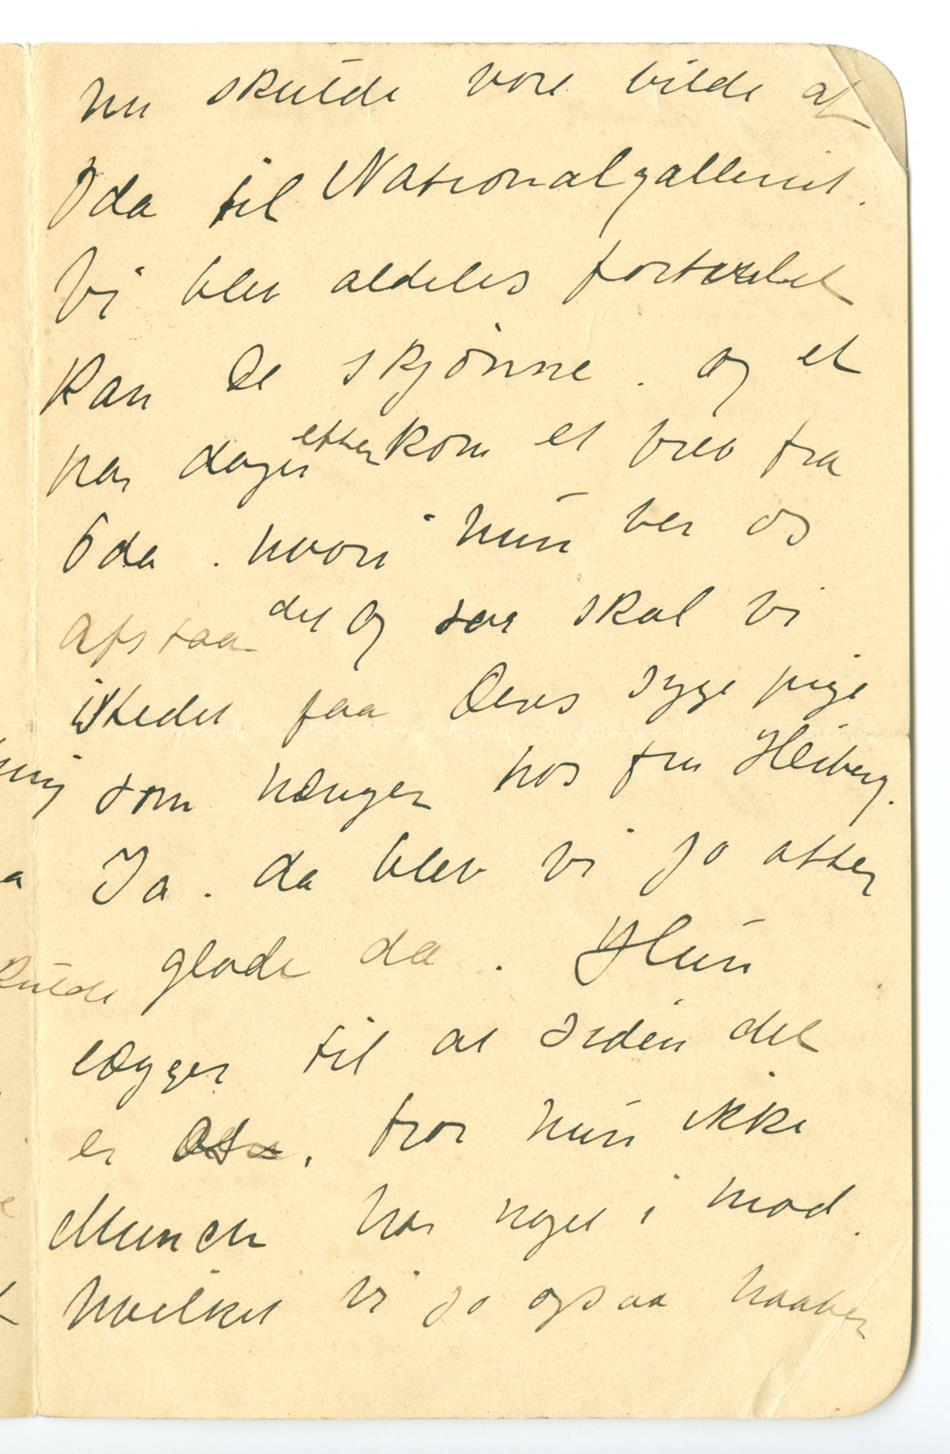 nu skulde vore bilde af
Oda til Nationalgalleriet.
Vi blev aldeles fortvilet
kan De skjønne. og et
par dager efter kom et brev fra
Oda. hvori hun ber os
afstaa det og saa skal vi
istedet faa Deres syge pige
som hænger hos fru Heiberg.
Ja. da blev vi jo atter
glade da. Hun
lægger til at siden det
er, tror hun ikke
Munch har noget i mod.
hvilket vi jo ogsaa haaber